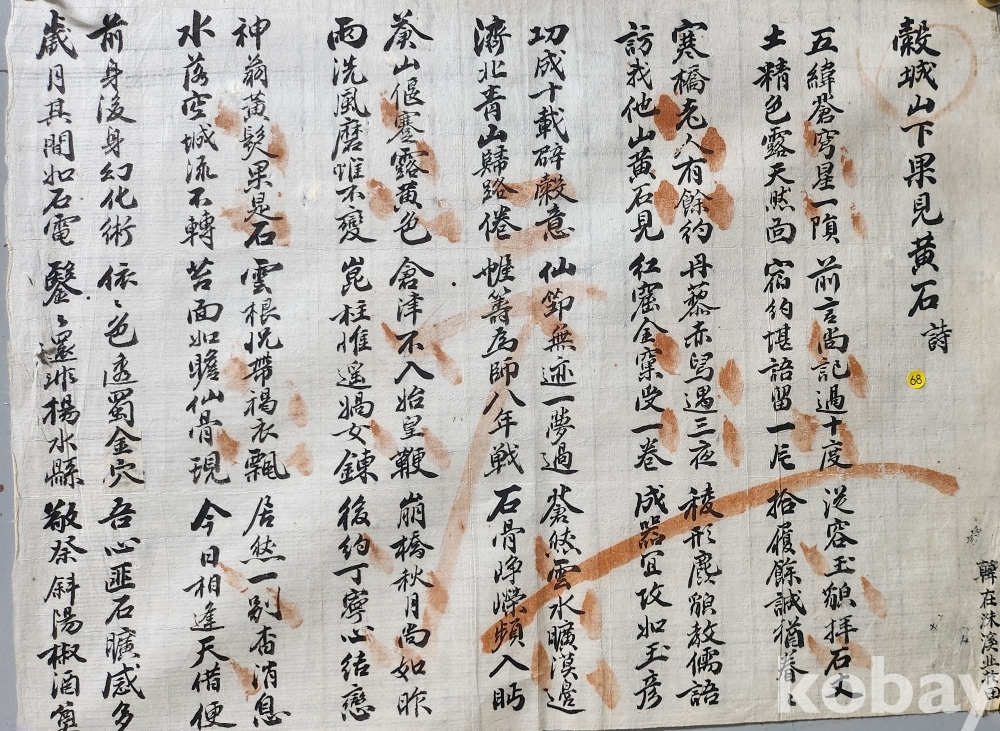 穀城山下果見黃石 詩
五緯蒼穹星一隕 前言尚記過十度 從容玉貌拜石丈
土精色露天然面 宿約堪語留一片 拾履餘誠猶眷〻
寒橋老人有餘約 丹藜赤舃遇三夜 稜形麁貌教儒語
訪我他山黃石見 紅金受一卷 成器宜攻如玉彦
功成十載辟穀意 仙節無迹一夢過 蒼然雲水曠漠邊
濟北靑山歸路倦 帷籌為師八年戰 石骨崢嶸頻入眄
山偃蹇露黃色 倉津不入始皇鞭 崩橋秋月尚如昨
雨洗風磨惟不變 崑柱惟遥媧女鍊 後約丁寧心結戀
神翁黃髮果是石 雲根怳帶褐衣飄 居然一別杳消息
水落空城流不轉 苔面如瞻仙骨現 今日相逢天借便
前身後身幻化術 依〻色透蜀金穴 吾心匪石曠感多
歲月其間如石電 鑿〻還非楊水縣 敬祭斜陽椒酒奠
韓在洙
68
kobay